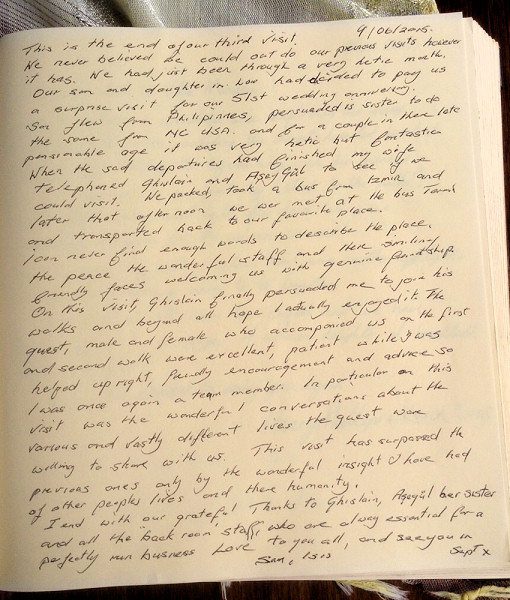 9/06/2015.
This is the end of our third visit.
We never believed we could out do our previous visits however
it has. We had just been through a very hetic month.
Our son and daughter in law had decided to pay us
a surprise visit for our 51st wedding anniversery.
Son flew from Philipinnes, persuaded is sister to do
the same from NC USA. and for a couple in there late
pensionable age it was very hetic but fantastic
When the sad departures had finished my wife
telephoned Ghislain and Aşeygül to see if we
could visit. We packed, took a bus from Izmir and
later that afternoon we wer met at the bus
and transported back to our favourite place.
I can never find enough words to describe the place,
the peace the wonderful staff and there smiling
friendly faces welcoming us with genuine friendship
On this visit, Ghislain finally persuaded me to join his
walks and beyond all hope I actually enjoyed it. The
guest, male and female who accompanied us on the first
and second walk were excellent, patient while I was
helped upright, friendly encouragement and advice so
I was once again a team member. In particular on this
visit was the wonderful conversations about the
various and vastly different lives the guest were
willing to share with us. This visit has surpassed the
previous ones only by the wonderful insight I have had
of other peoples lives and there humanity.
I end with our grateful Thanks to Ghislain, Aşeygül her sister
and all the back room staff, who are alway essential for a
perfectly run business Love to you all, and see you in
Sam, Isis Sept x